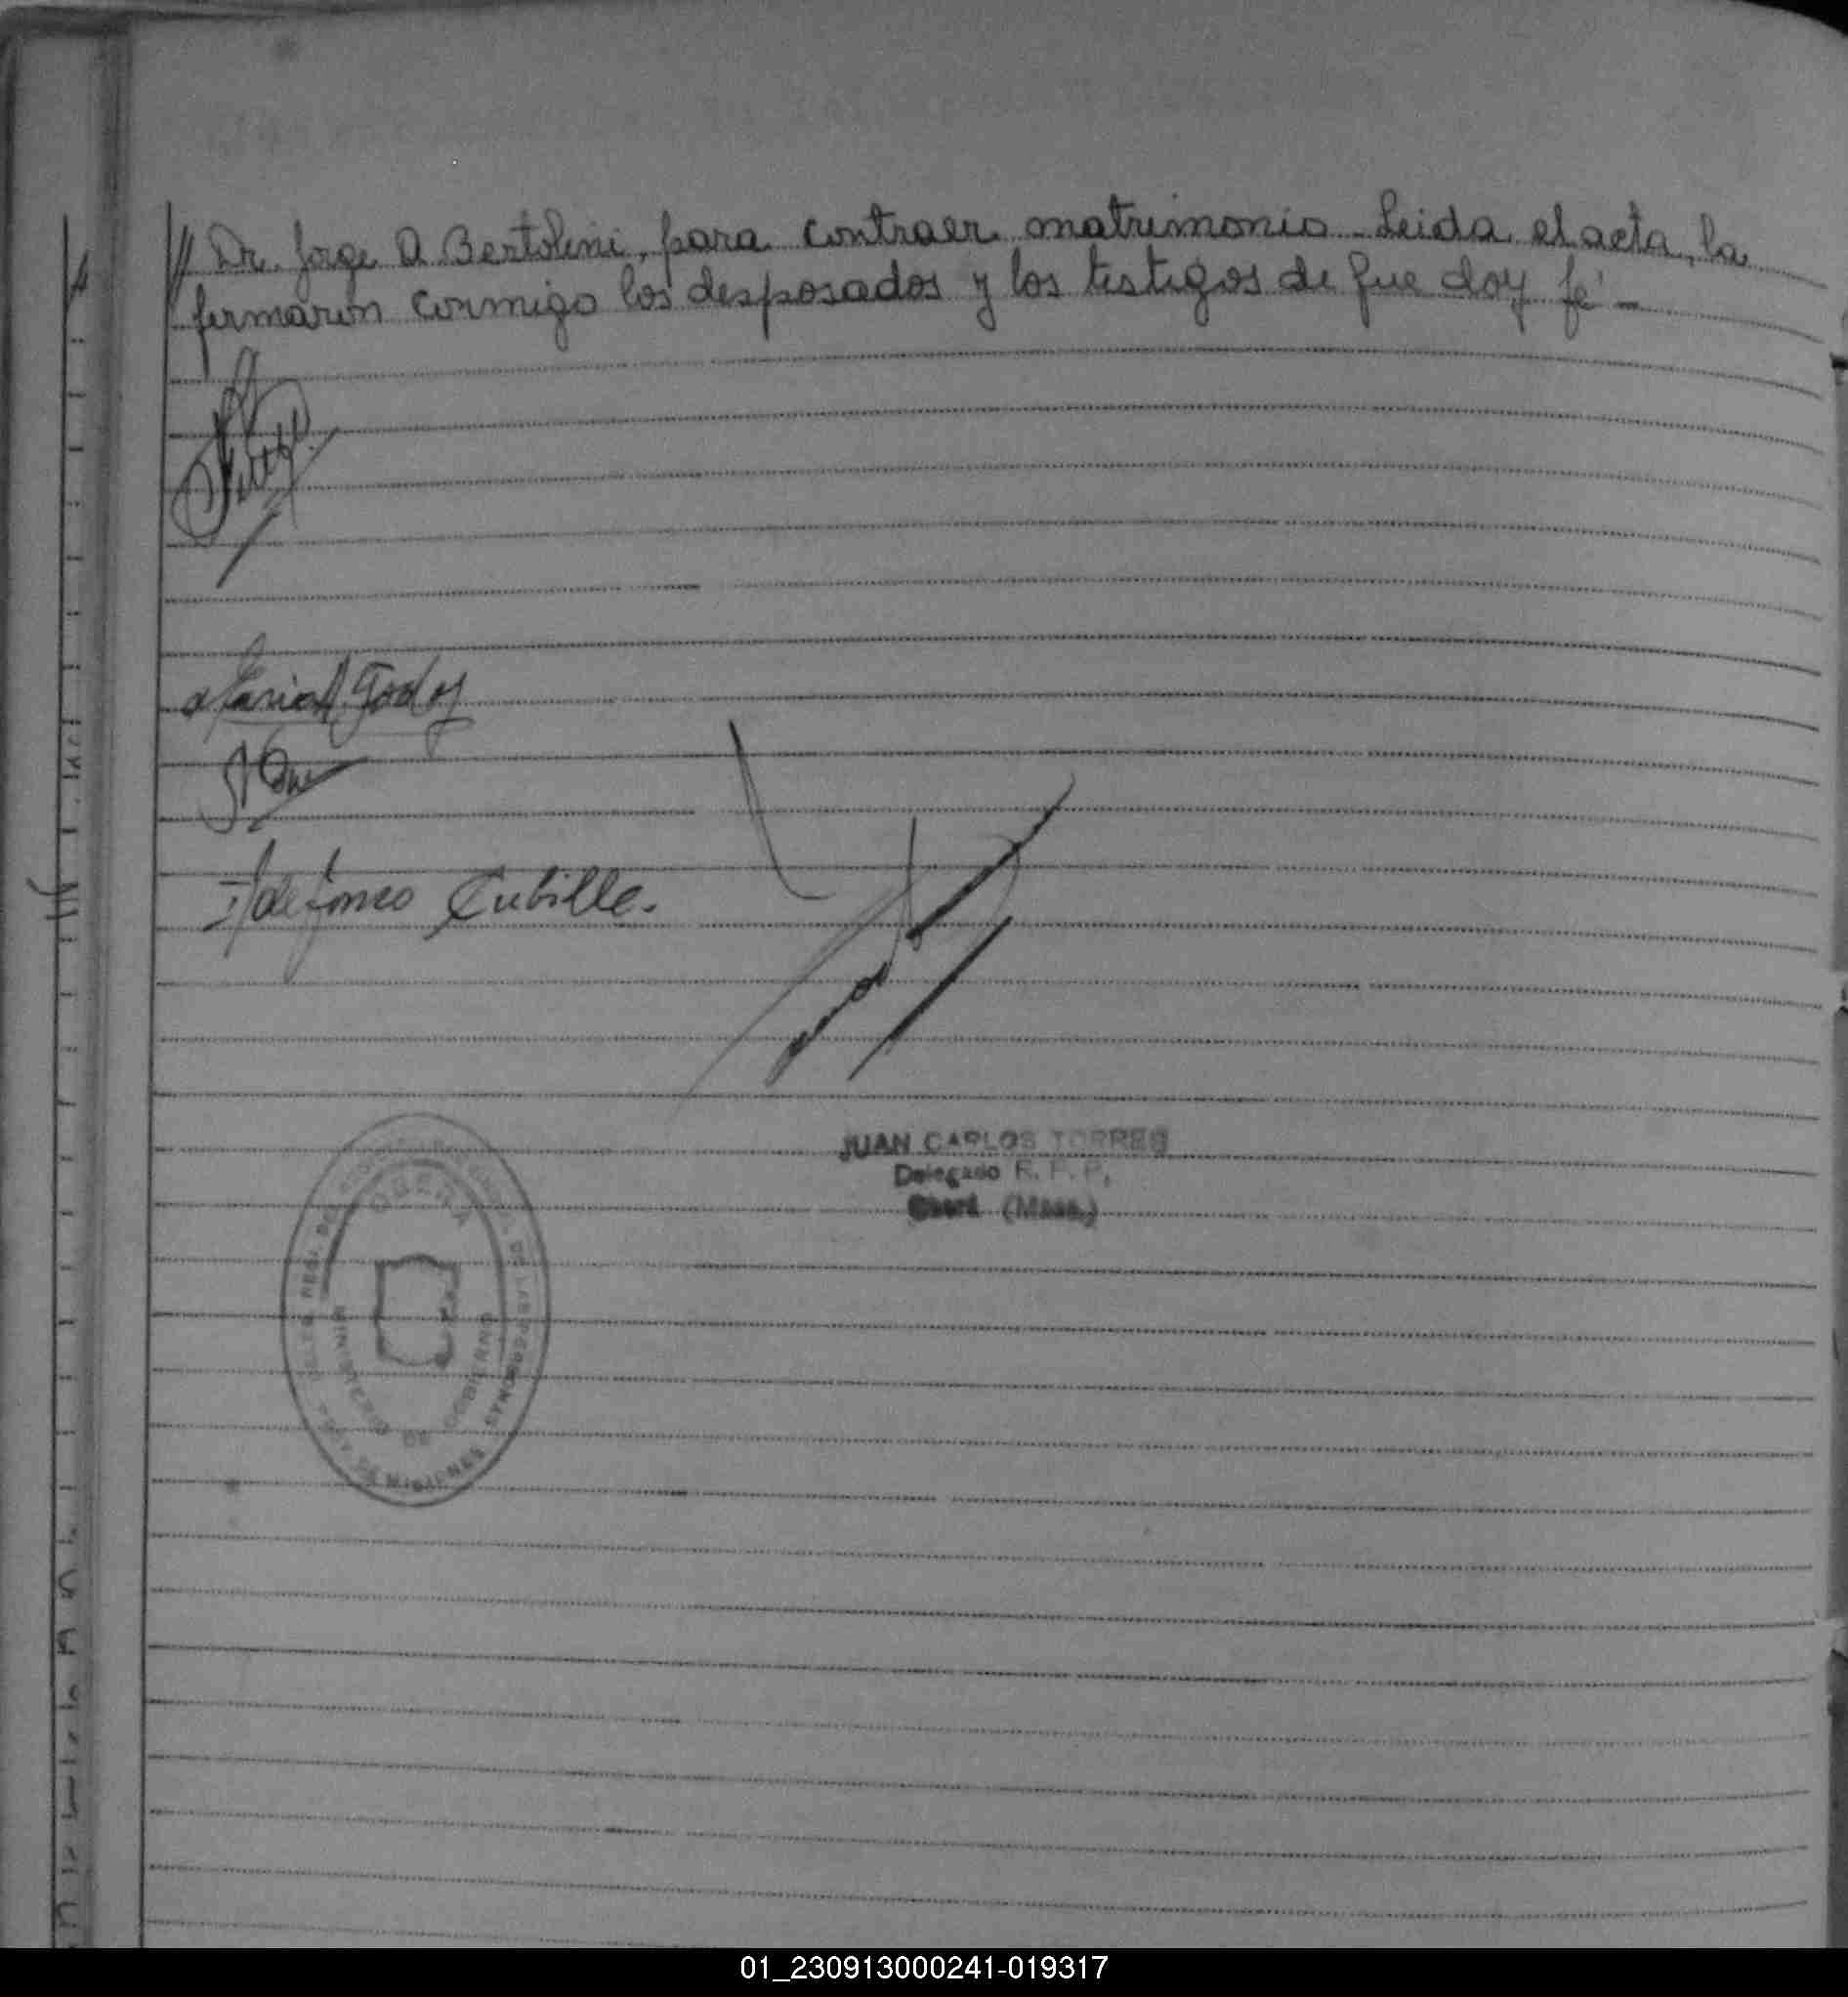 // Dr. Jorge A. Bertolini, para contraer matrimonio - Leida el acta, la
firmaron conmigo los desposados y los testigos de que doy fé -
Maria A. Godoy
Ildefonso Cubilla.
JUAN CARLOS TORRES
Delegado R. P. P.
(Mnes.)
DE LAS PERSONAS
MINISTERIO DE GOBIERNO
DE MISIONES
01_230913000241-019317